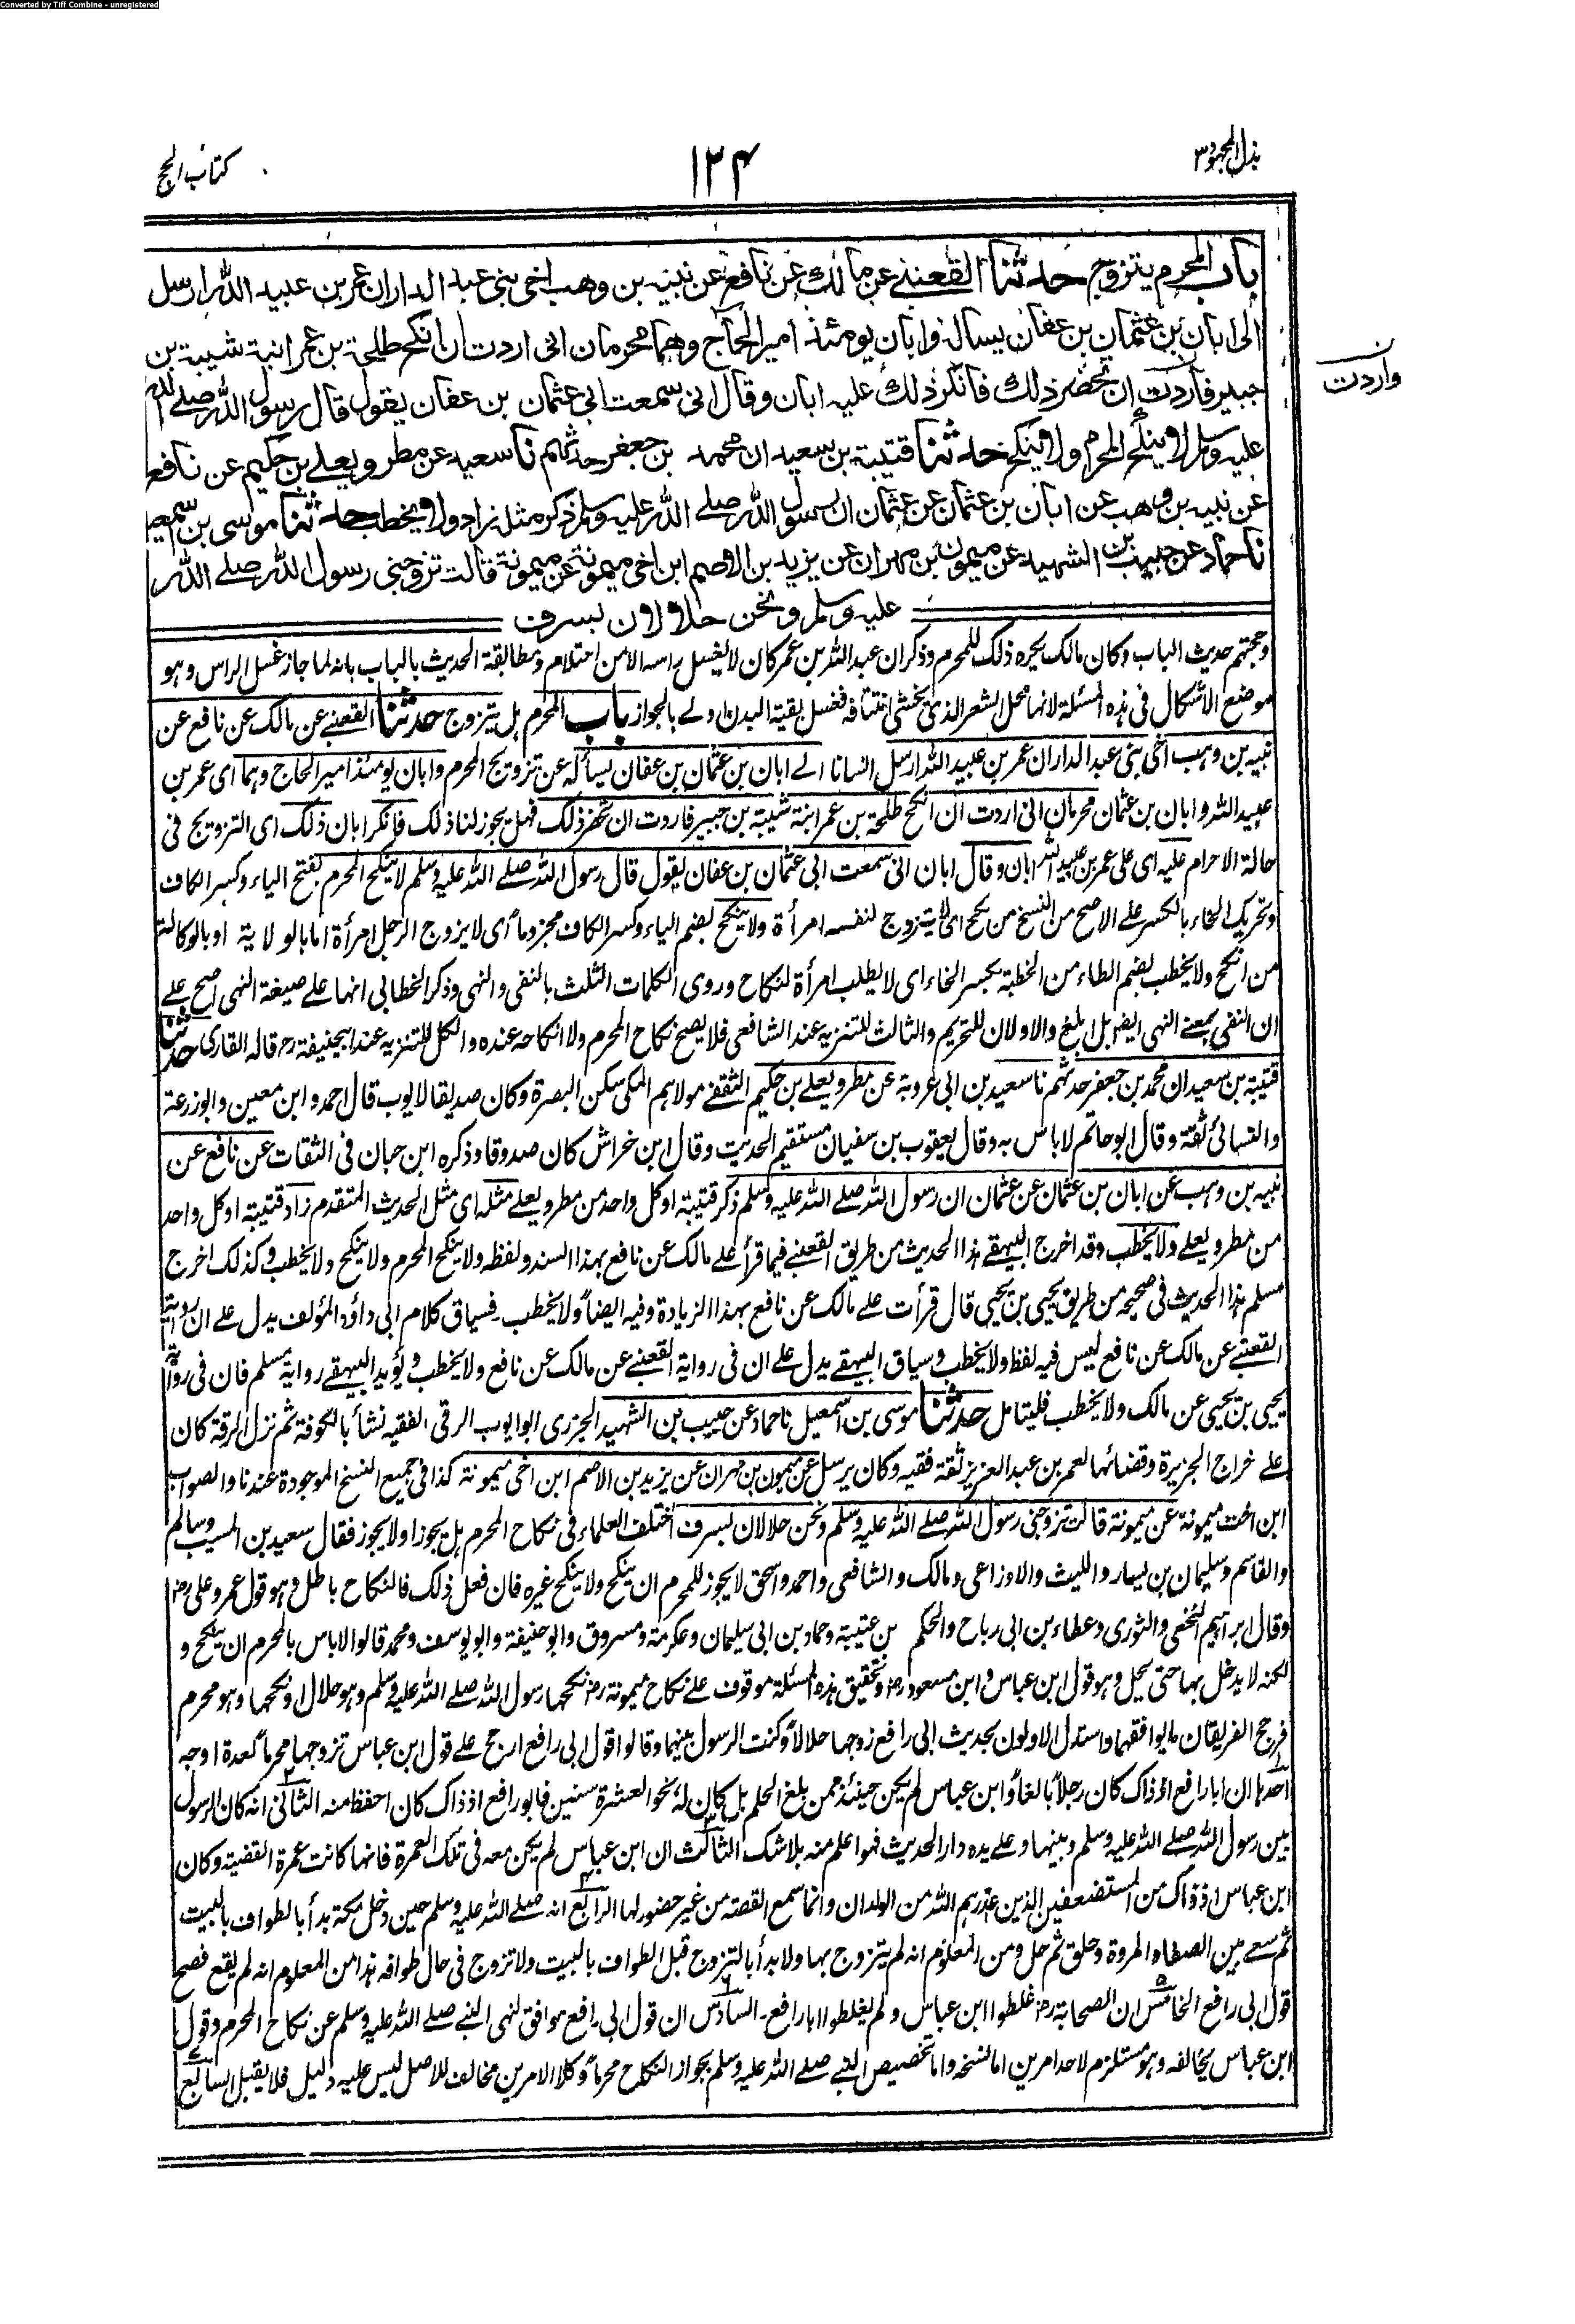 Converted by Tiff Combine - unregistered
بذل المجهود ٣
١٢٤
كتاب الحج
باب المحرم يتزوج حدثنا القعنبي عن مالك عن نافع عن نبيه بن وهب اخي بني عبد الدار ان عمر بن عبيد الله ارسل
الى ابان بن عثمان بن عفان يساله وابان يومئذ امير الحاج وهما محرمان اني اردت ان انكح طلحة بن عمر ابنة شيبة بن
جبير فاردت ان تحضر ذلك فانكر ذلك عليه ابان وقال اني سمعت ابي عثمان بن عفان يقول قال رسول الله صلى الله
واردت
عليه وسلم لا ينكح المحرم ولا ينكح حدثنا قتيبة بن سعيد ان محمد بن جعفر حدثهم نا سعيد عن مطر ويعلى بن حكيم عن نافع
عن نبيه بن وهب عن ابان بن عثمان عن عثمان ان رسول الله صلى الله عليه وسلم ذكر مثله زاد ولا يخطب حدثنا موسى بن اسمعيل
نا حماد عن حبيب بن الشهيد عن ميمون بن مهران عن يزيد بن الاصم ابن اخي ميمونة عن ميمونة قالت تزوجني رسول الله صلى الله
عليه وسلم ونحن حلالان بسرف
وحجتهم حديث الباب وكان مالك يكره ذلك للمحرم وذكر ان عبد الله بن عمر كان لا يغسل راسه الا من احتلام ومطابقة الحديث بالباب بانه لما جاز غسل الراس وهو
موضع الاشكال في هذه المسئلة لانها محل الشعر الذي يخشى انتتافه فغسل بقية البدن اولى بالجواز باب المحرم هل يتزوج حدثنا القعنبي عن مالك عن نافع عن
نبيه بن وهب اخي بني عبد الدار ان عمر بن عبيد الله ارسل انسانا الى ابان بن عثمان بن عفان يسأله عن تزويج المحرم وابان يومئذ امير الحاج وهما اي عمر بن
عبيد الله وابان بن عثمان محرمان اني اردت ان انكح طلحة بن عمر ابنة شيبة بن جبير فاردت ان تحضر ذلك فهل يجوز لنا ذلك فانكر ابان ذلك اي التزويج في
حالة الاحرام عليه اي على عمر بن عبيد الله ابان وقال ابان اني سمعت ابي عثمان بن عفان يقول قال رسول الله صلى الله عليه وسلم لا ينكح المحرم بفتح الياء وكسر الكاف
وتحريك الحاء بالكسر على الاصح من النسخ من نكح اي لا يتزوج لنفسه امرأة ولا ينكح بضم الياء وكسر الكاف مجزوما اي لا يزوج الرجل امرأة اما بالولاية او بالوكالة
من انكح ولا يخطب بضم الطاء من الخطبة بكسر الخاء اي لا يطلب امرأة لنكاح وروى الكلمات الثلث بالنفي والنهي وذكر الخطابي انها على صيغة النهي اصح على
ان النفي بمعنى النهي ايضا بل ابلغ والاولان للتحريم والثالث للتنزيه عند الشافعي فلا يصح نكاح المحرم ولا انكاحه عنده والكل للتنزيه عند ابي حنيفة رح قاله القاري حدثنا
قتيبة بن سعيد ان محمد بن جعفر حدثهم نا سعيد بن ابي عروبة عن مطر ويعلى بن حكيم الثقفي مولاهم المكي سكن البصرة وكان صديقا لايوب قال احمد وابن معين وابو زرعة
والنسائي ثقة وقال ابو حاتم لا باس به وقال يعقوب بن سفيان مستقيم الحديث وقال ابن خراش كان صدوقا وذكره ابن حبان في الثقات عن نافع عن
نبيه بن وهب عن ابان بن عثمان عن عثمان ان رسول الله صلى الله عليه وسلم ذكر قتيبة او كل واحد من مطر ويعلى مثله اي مثل الحديث المتقدم زاد قتيبة او كل واحد
من مطر ويعلى ولا يخطب وقد اخرج البيهقي هذا الحديث من طريق القعنبي فيما قرأ على مالك عن نافع بهذا السند ولفظه ولا ينكح المحرم ولا ينكح ولا يخطب وكذلك اخرج
مسلم هذا الحديث في صحيحه من طريق يحيى بن يحيى قال قرأت على مالك عن نافع بهذا الزيادة وفيه ايضا ولا يخطب فسياق كلام ابي داؤد المؤلف يدل على ان رواية
القعنبي عن مالك عن نافع ليس فيه لفظ ولا يخطب وسياق البيهقي يدل على ان في رواية القعنبي عن مالك عن نافع ولا يخطب ويؤيد البيهقي رواية مسلم فان في رواية
يحيى بن يحيى عن مالك ولا يخطب فليتامل حدثنا موسى بن اسمعيل نا حماد عن حبيب بن الشهيد الجزري ابو ايوب الرقي الفقيه نشأ بالكوفة ثم نزل الرقة كان
على خراج الجزيرة وقضائها لعمر بن عبد العزيز ثقة فقيه وكان يرسل عن ميمون بن مهران عن يزيد بن الاصم ابن اخي ميمونة كذا في جميع النسخ الموجودة عندنا والصواب
ابن اخت ميمونة عن ميمونة قالت تزوجني رسول الله صلى الله عليه وسلم ونحن حلالان بسرف اختلف العلماء في نكاح المحرم هل يجوز او لا يجوز فقال سعيد بن المسيب وسالم
والقاسم وسليمان بن يسار والليث والاوزاعي ومالك والشافعي واحمد واسحق لا يجوز للمحرم ان ينكح ولا ينكح غيره فان فعل ذلك فالنكاح باطل وهو قول عمر وعلي رض
وقال ابراهيم النخعي والثوري وعطاء بن ابي رباح والحكم بن عتيبة وحماد بن ابي سليمان وعكرمة ومسروق وابو حنيفة وابو يوسف ومحمد قالوا لا باس بالمحرم ان ينكح و
لكنه لا يدخل بها حتى يحل وهو قول ابن عباس وابن مسعود رض وتحقيق هذه المسئلة موقوف على نكاح ميمونة رض نكحها رسول الله صلى الله عليه وسلم وهو حلال او نكحها وهو محرم
فرجح الفريقان ما يوافقهما واستدل الاولون بحديث ابي رافع زوجها حلالا وكنت الرسول بينهما وقالوا قول ابي رافع ارجح على قول ابن عباس تزوجها محرما لعدة اوجه
احدها ان ابا رافع اذ ذاك كان رجلا بالغا وابن عباس لم يكن حينئذ ممن بلغ الحلم بل كان له نحو العشرة سنين فابو رافع اذ ذاك كان احفظ منه الثاني انه كان الرسول
بين رسول الله صلى الله عليه وسلم وبينها وعلى يده دار الحديث فهو اعلم منه بلا شك الثالث ان ابن عباس لم يكن معه في تلك العمرة فانها كانت عمرة القضية وكان
ابن عباس اذ ذاك من المستضعفين الذين عذرهم الله من الولدان وانما سمع القصة من غير حضور لها الرابع انه صلى الله عليه وسلم حين دخل مكة بدأ بالطواف بالبيت
ثم سعى بين الصفا والمروة وحلق ثم حل ومن المعلوم انه لم يتزوج بها ولا بدأ بالتزوج قبل الطواف بالبيت ولا تزوج في حال طوافه هذا من المعلوم انه لم يقع فصح
قول ابي رافع الخامس ان الصحابة رض غلطوا ابن عباس ولم يغلطوا ابا رافع۔ السادس ان قول ابي رافع موافق لنهي النبي صلى الله عليه وسلم عن نكاح المحرم وقول
ابن عباس يخالفه وهو مستلزم لاحد امرين اما لنسخه واما تخصيص النبي صلى الله عليه وسلم بجواز النكاح محرما وكلا الامرين مخالف للاصل ليس عليه دليل فلا يقبل السابع